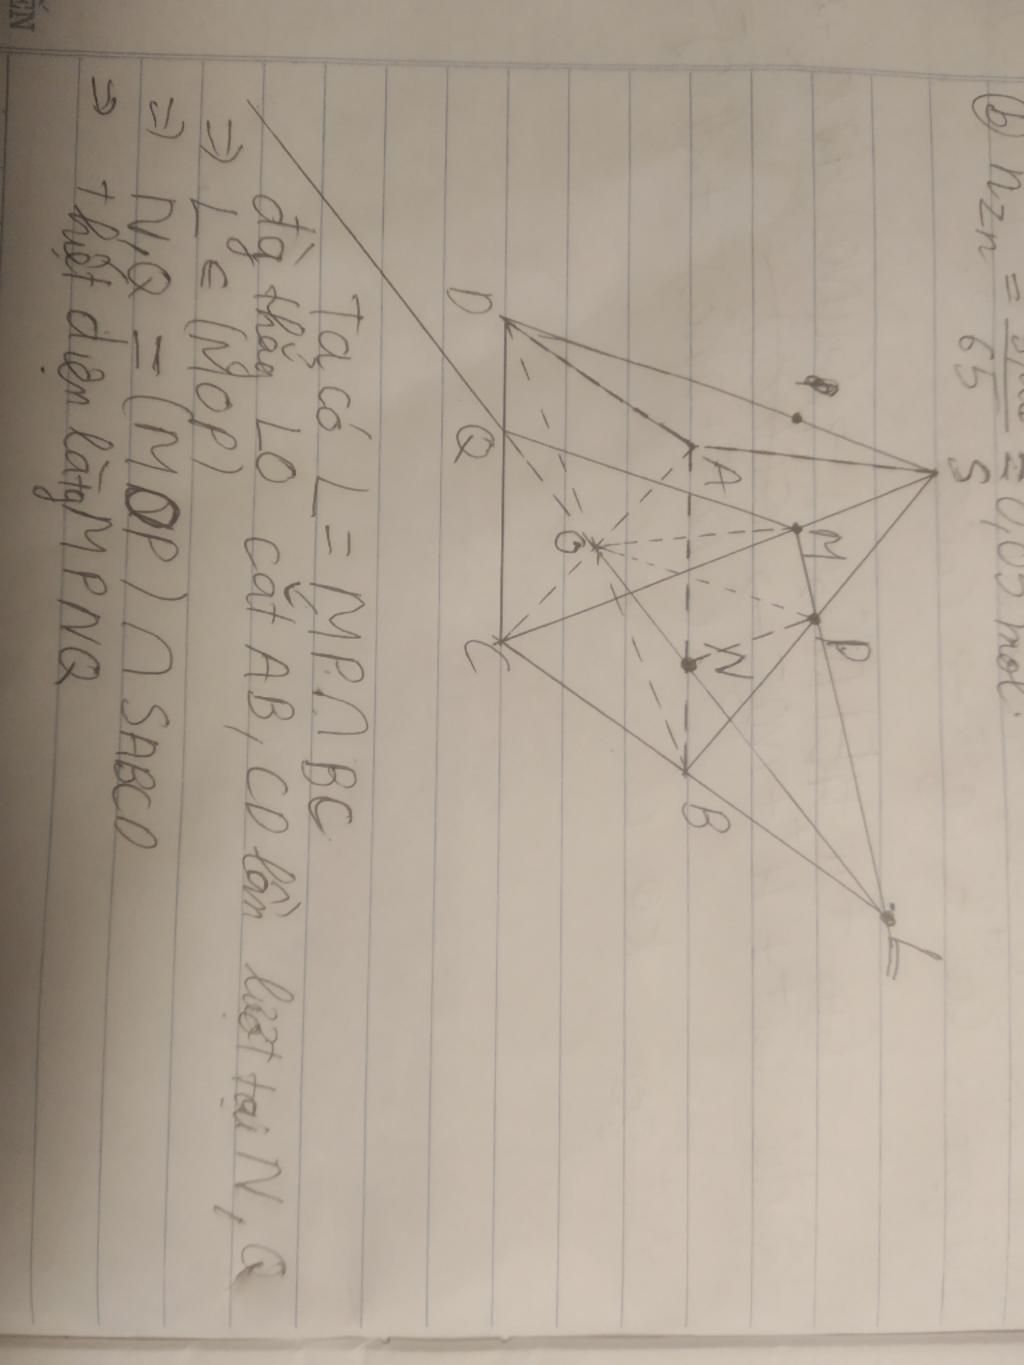 ẾN
b) n Zn = = 0,05 mol.
65
S
M
P
L
A
N
B
D
O
Q
C
Ta có L = MP ∩ BC
đg thẳng LO cắt AB, CD lần lượt tại N, Q
⇒ L ∈ (MOP)
⇒ N,Q = (MOP) ∩ SABCD
⇒ thiết diện là tg MPNQ